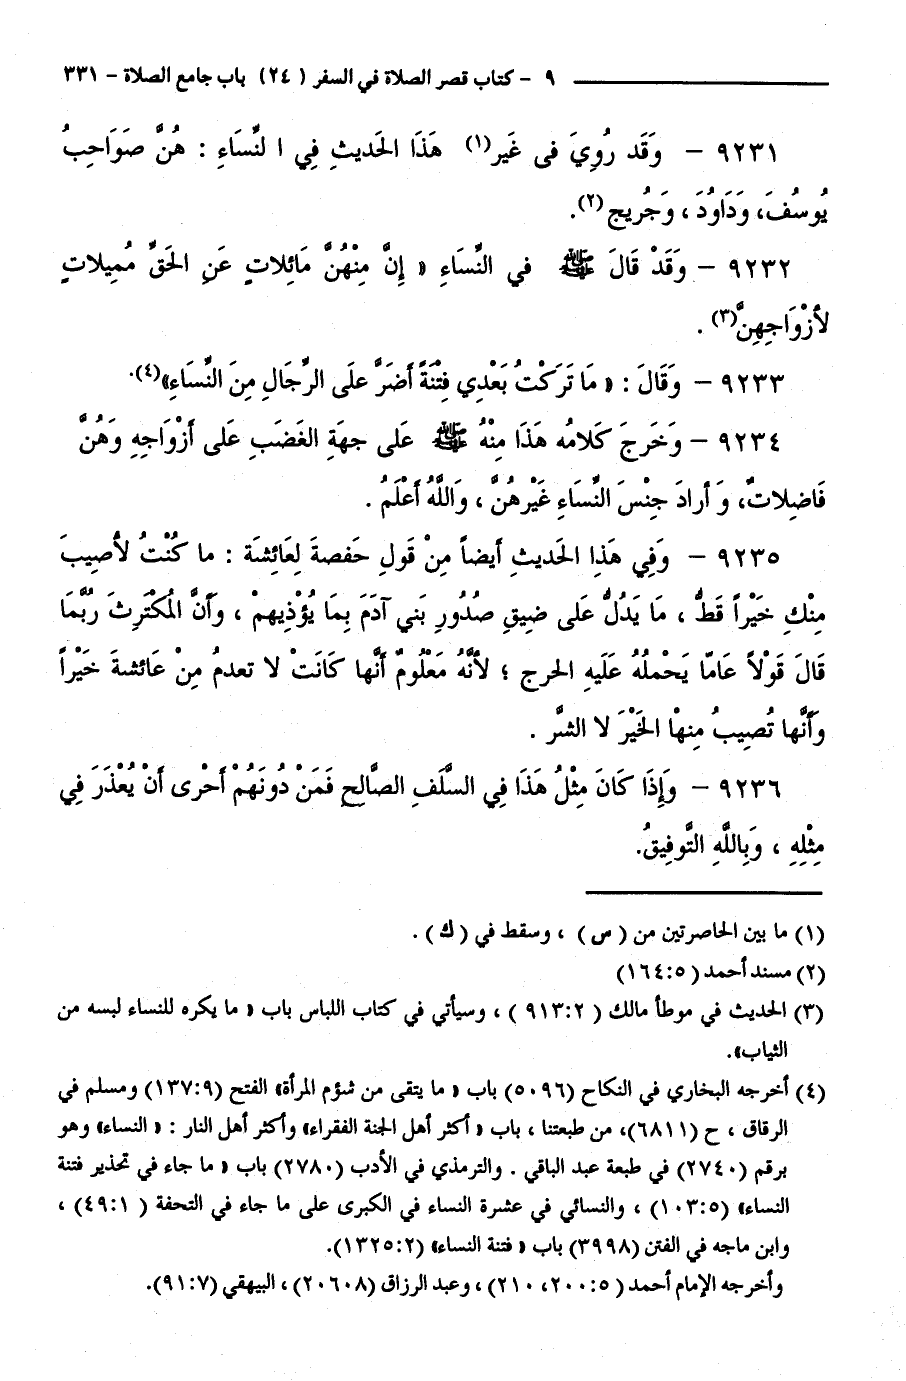 ٩ - كتاب قصر الصلاة في السفر ( ٢٤) باب جامع الصلاة - ٣٣١
٩٢٣١ - وَقَد رُوِيَ فى غَير(١) هَذَا الحَديثِ فِي ا لنِّسَاءِ : هُنَّ صَوَاحِبُ
يُوسُفَ، وَدَاوُدَ ، وَجُريج (٢).
٩٢٣٢ - وَقَدْ قَالَ ﷺ في النِّسَاءِ « إِنَّ مِنْهُنَّ مَائِلاتٍ عَنِ الحَقِّ مُمِيلاتٍ
لأزْوَاجِهِنَّ(٣) .
٩٢٣٣ - وَقَالَ : « مَا تَرَكْتُ بَعْدِي فِتْنَةً أضَرَّ علَى الرِّجَالِ مِنَ النِّسَاءِ»(٤).
٩٢٣٤ - وَخَرجَ كَلامُه هَذَا مِنْهُ ﷺ عَلى جهَةِ الغَضَبِ عَلى أزْوَاجِهِ وَهُنَّ
فَاضِلاتٌ، وَ أرادَ جِنْسَ النِّسَاءِ غَيْرِهُنَّ ، وَاللَّهُ أعْلَمُ .
٩٢٣٥ - وَفِي هَذِا الحَديثِ أيضاً مِنْ قَولِ حَفصةَ لِعَائِشَة : ما كُنْتُ لأصِيبَ
مِنْكِ خَيْراً قَطُّ ، مَا يَدُلُّ عَلى ضيقِ صُدُورِ بَني آدَمَ بِمَا يُؤْذِيهمْ ، وَأنَّ المُكْتَرِثَ رُبَّمَا
قَالَ قَوْلاً عَامّا يَحْملُهُ عَلَيهِ الحرج ؛ لأنَّهُ مَعْلُومٌ أنَّها كَانَتْ لا تعدمُ مِنْ عَائشةَ خَيْراً
وَأنَّها تُصِيبُ مِنهْا الخَيْرَ لا الشرَّ .
٩٢٣٦ - وَإِذَا كَانَ مِثْلُ هَذَا فِي السَّلَفِ الصَّالِحِ فَمَنْ دُونَهُمْ أحْرى أنْ يُعْذَرَ فِي
مِثْلِهِ ، وَبِاللَّهِ التَّوفِيقُ.
(١) ما بين الحاصرتين من ( س ) ، وسقط في ( ك ) .
(٢) مسند أحمد ( ١٦٤:٥)
(٣) الحديث في موطأ مالك ( ٩١٣:٢ ) ، وسيأتي في كتاب اللباس باب « ما يكره للنساء لبسه من
الثياب».
(٤) أخرجه البخاري في النكاح (٥٠٩٦) باب « ما يتقى من شؤم المرأة» الفتح (١٣٧:٩) ومسلم في
الرقاق ، ح (٦٨١١)، من طبعتنا ، باب « أكثر أهل الجنة الفقراء» وأكثر أهل النار : « النساء» وهو
برقم (٢٧٤٠) في طبعة عبد الباقي . والترمذي في الأدب (٢٧٨٠) باب « ما جاء في تحذير فتنة
النساء» (١٠٣:٥) ، والنسائي في عشرة النساء في الكبرى على ما جاء في التحفة ( ٤٩:١) ،
وابن ماجه في الفتن (٣٩٩٨) باب « فتنة النساء» (١٣٢٥:٢).
وأخرجه الإمام أحمد ( ٢٠٠:٥، ٢١٠) ، وعبد الرزاق (٢٠٦٠٨) ، البيهقي (٩١:٧).